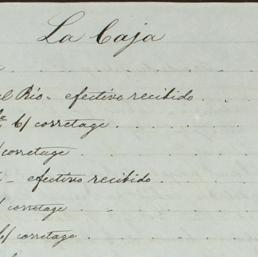 La Caja
el Rio - efectivo recibido
c/ corretage
c/ corretage
- efectivo recibido
c/ corretage
c/ corretage